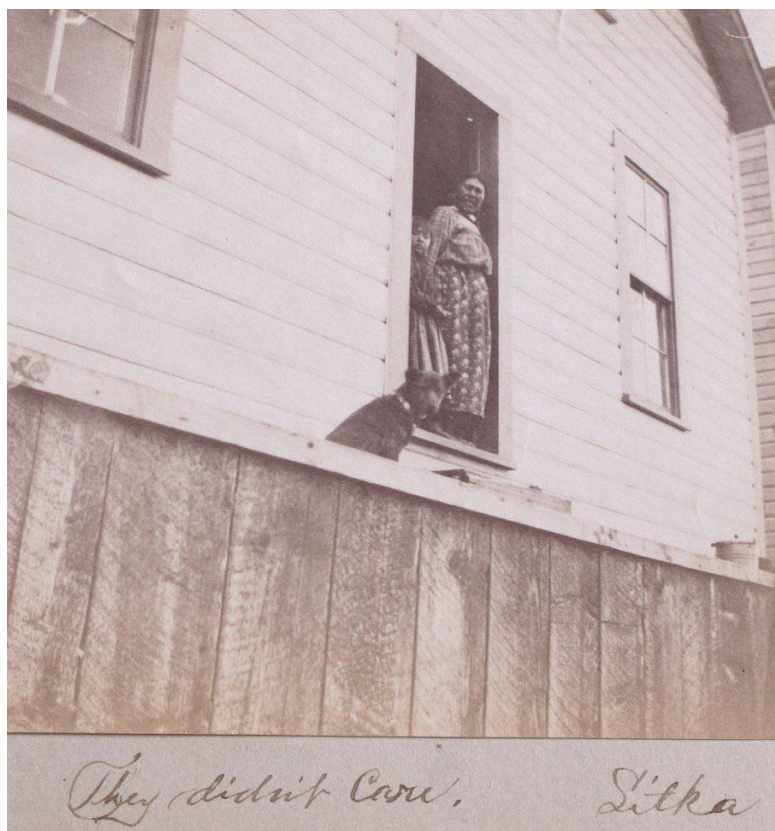 They didn't Care. Sitka